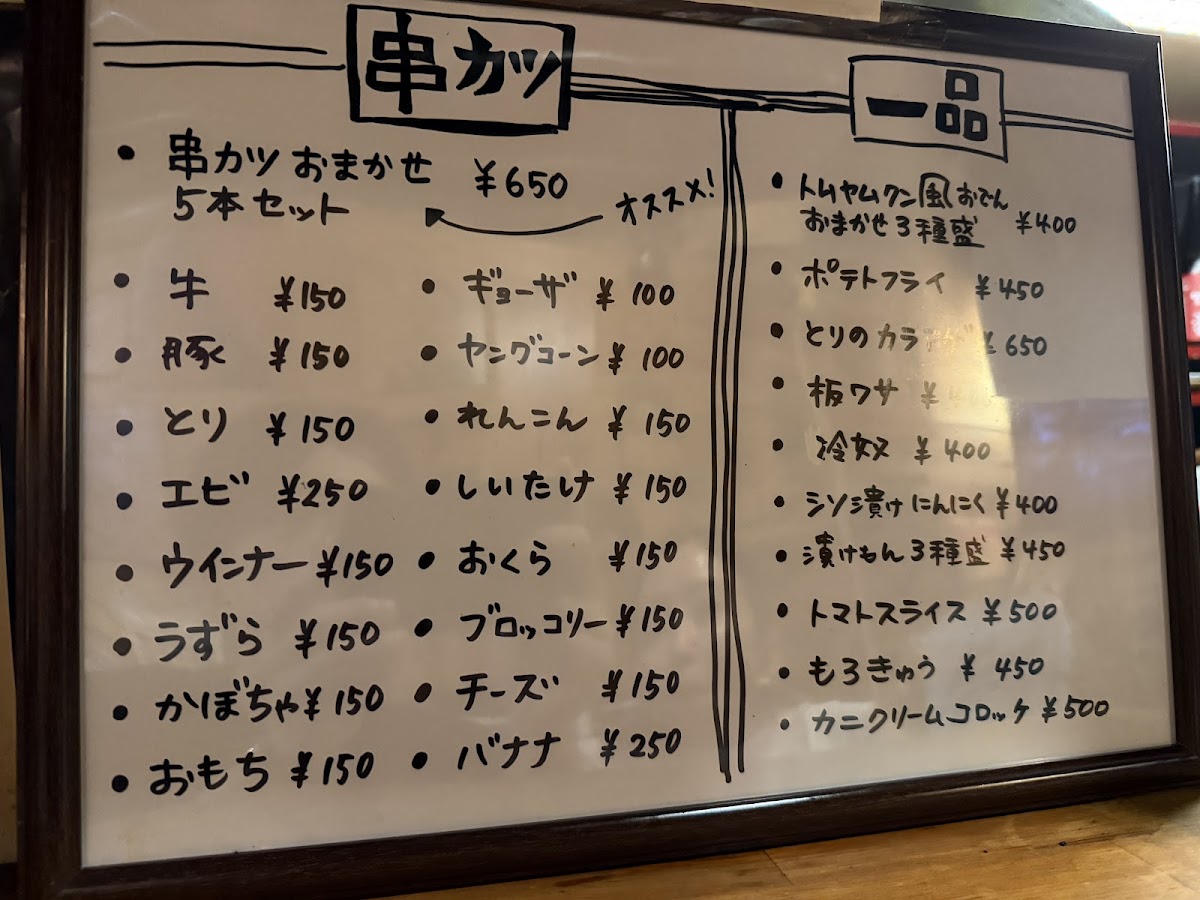 串カツ
・串カツ おまかせ ¥650
5本セット
オススメ!
・牛 ¥150
・豚 ¥150
・とり ¥150
・エビ ¥250
・ウインナー ¥150
・うずら ¥150
・かぼちゃ ¥150
・おもち ¥150
・ギョーザ ¥100
・ヤングコーン ¥100
・れんこん ¥150
・しいたけ ¥150
・おくら ¥150
・ブロッコリー ¥150
・チーズ ¥150
・バナナ ¥250
一品
・トムヤムクン風おでん
おまかせ3種盛 ¥400
・ポテトフライ ¥450
・とりのカラアゲ ¥650
・板ワサ ¥
・冷奴 ¥400
・シソ漬けにんにく ¥400
・漬けもん3種盛 ¥450
・トマトスライス ¥500
・もろきゅう ¥450
・カニクリームコロッケ ¥500